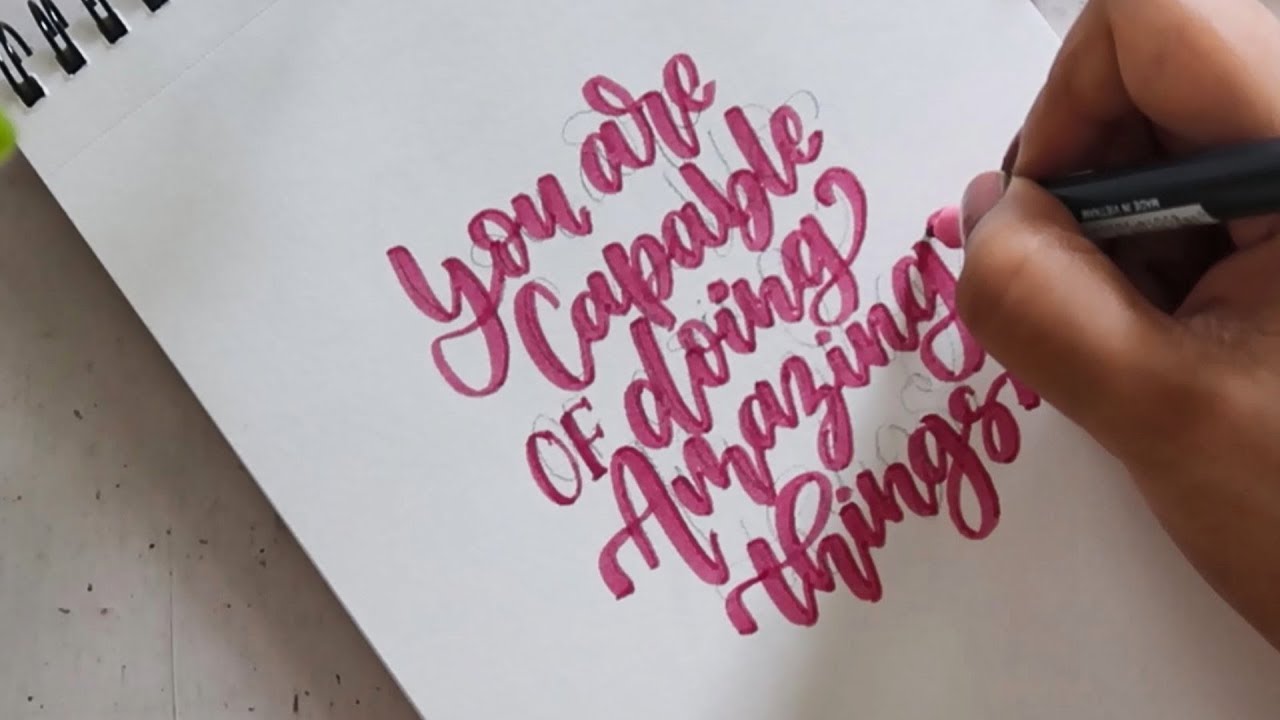 You are
Capable
OF doing
Amazing
things
MADE IN VIETNAM